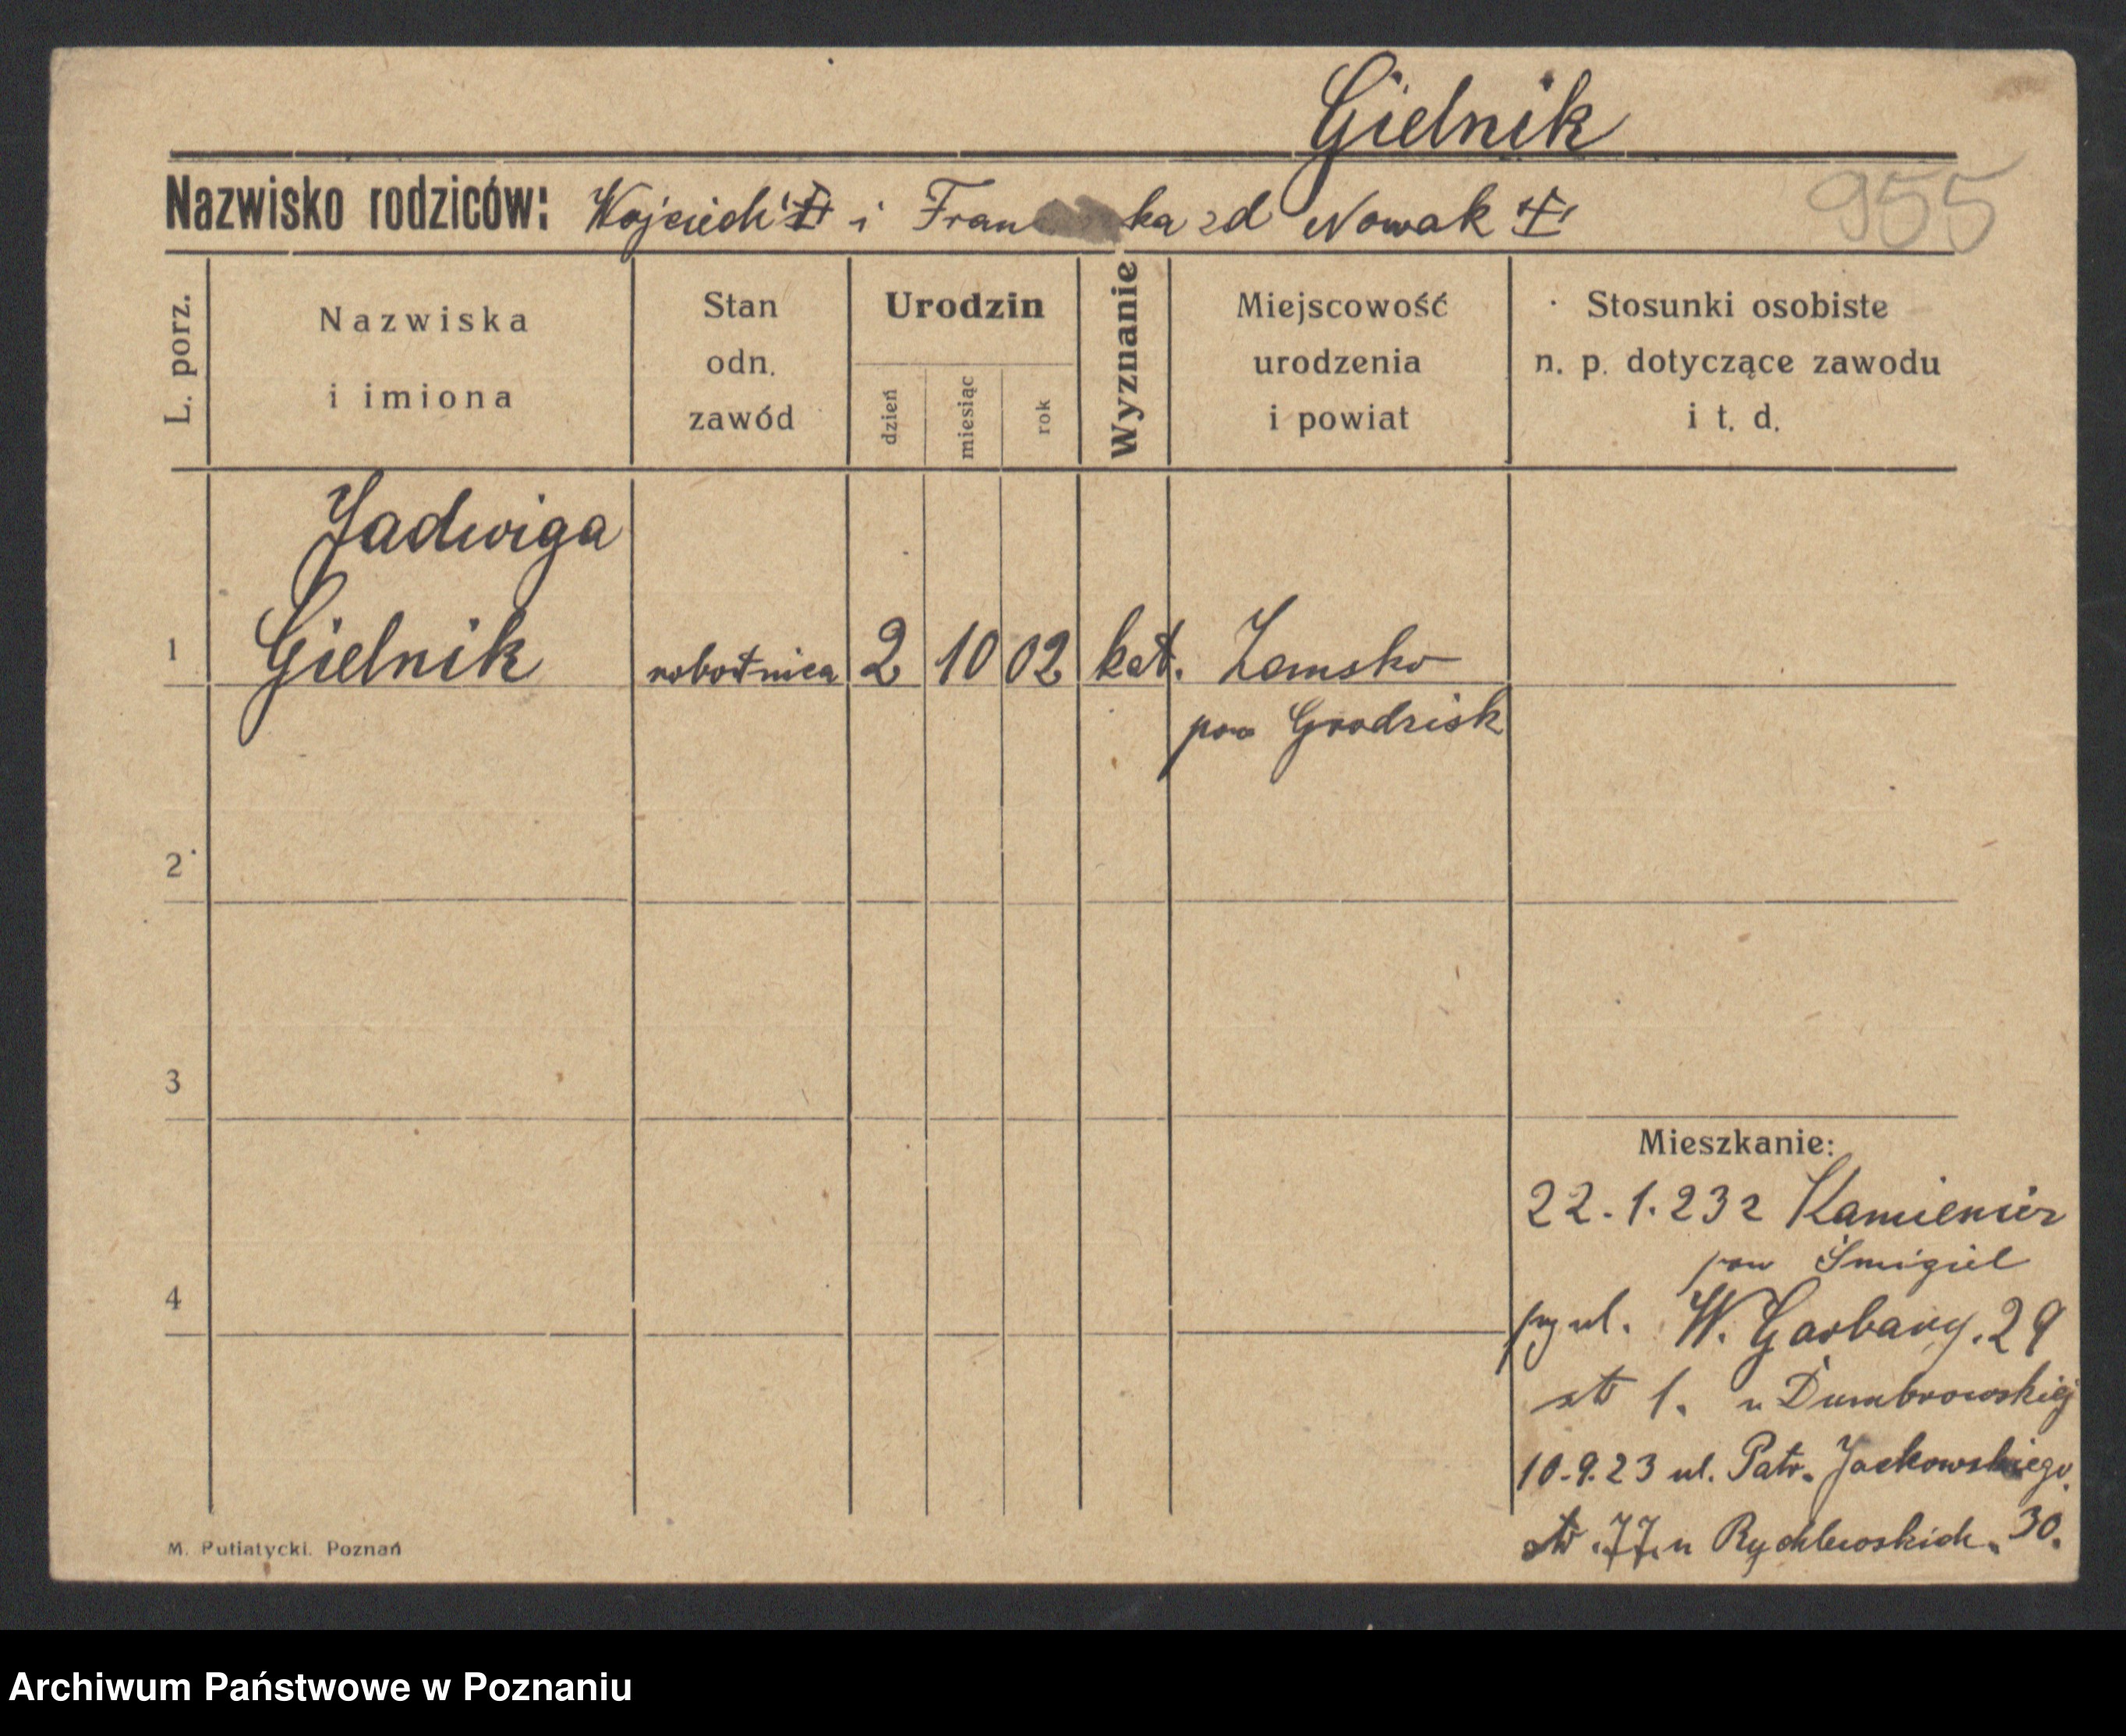 Gielnik
Nazwisko rodziców: Wojciech i Fran ka zd Nowak
955
L. porz.
Nazwiska
i imiona
Stan
odn.
zawód
Urodzin
dzień
miesiąc
rok
Wyznanie
Miejscowość
urodzenia
i powiat
Stosunki osobiste
n. p. dotyczące zawodu
i t. d.
Jadwiga
1 Gielnik robotnica 2 10 02 kat. Zemsko
pow Grodzisk
2
3
Mieszkanie:
22.1.23 z Kamieniec
pow Śmigiel
4
ul. W. Garbary. 29
1. u Dumbrowskiej
10.9.23 ul. Patr. Jackowskiego
77. u Rychlewskich. 30.
M. Putiatycki. Poznań
Archiwum Państwowe w Poznaniu